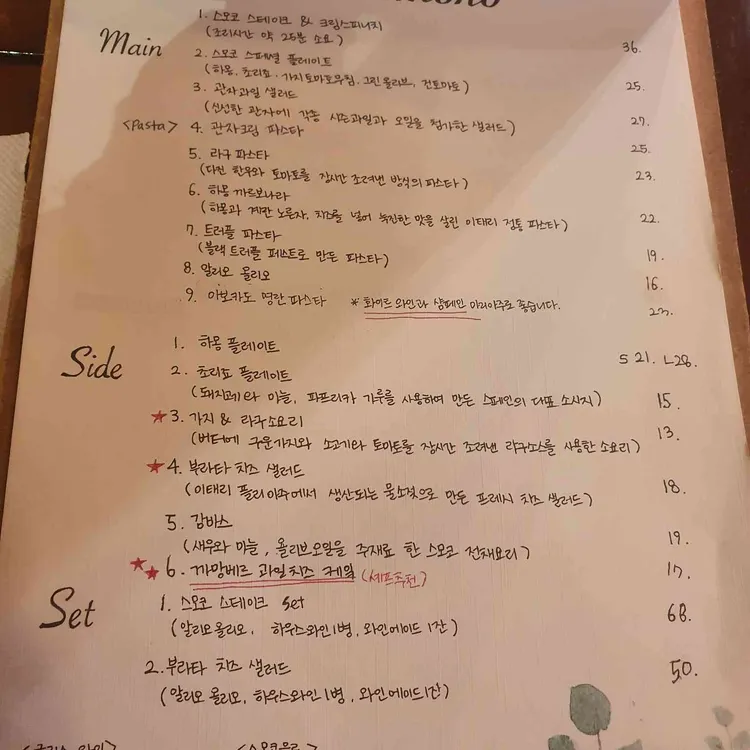 Main
1. 스모코 스테이크 & 크림스피니지
(조리시간 약 25분 소요) 36.
2. 스모코 스페셜 플레이트
(하몽, 초리쵸, 가지토마토무침, 그린올리브, 건토마토) 25.
3. 관자과일 샐러드
(신선한 관자에 각종 시즌과일과 오일을 첨가한 샐러드) 27.
<Pasta> 4. 관자크림 파스타 25.
5. 라구 파스타 23.
(다진 한우와 토마토를 장시간 조려낸 방식의 파스타)
6. 하몽 까르보나라 22.
(하몽과 계란 노른자, 치즈를 넣어 녹진한 맛을 살린 이태리 정통 파스타)
7. 트러플 파스타 19.
(블랙 트러플 페스트로 만든 파스타)
8. 알리오 올리오 16.
9. 아보카도 명란 파스타 * 화이트 와인과 샴페인 마리아주로 좋습니다. 23.
Side
1. 하몽 플레이트 S 21. L28.
2. 초리쵸 플레이트 15.
(돼지고기와 마늘, 파프리카 가루를 사용하여 만든 스페인의 대표 소시지)
3. 가지 & 라구소요리 13.
(버터에 구운가지와 소고기와 토마토를 장시간 조려낸 라구소스를 사용한 소요리)
4. 부라타 치즈 샐러드 18.
(이태리 풀리아주에서 생산되는 물소젖으로 만든 프레시 치즈 샐러드)
5. 감바스 19.
(새우와 마늘, 올리브오일을 주재료 한 스모코 전채요리)
6. 까망베르 과일치즈 케익 (셰프추천) 17.
Set
1. 스모코 스테이크 set 68.
(알리오올리오, 하우스와인1병, 와인에이드 1잔)
2. 부라타 치즈 샐러드 50.
(알리오 올리오, 하우스와인1병, 와인에이드1잔)